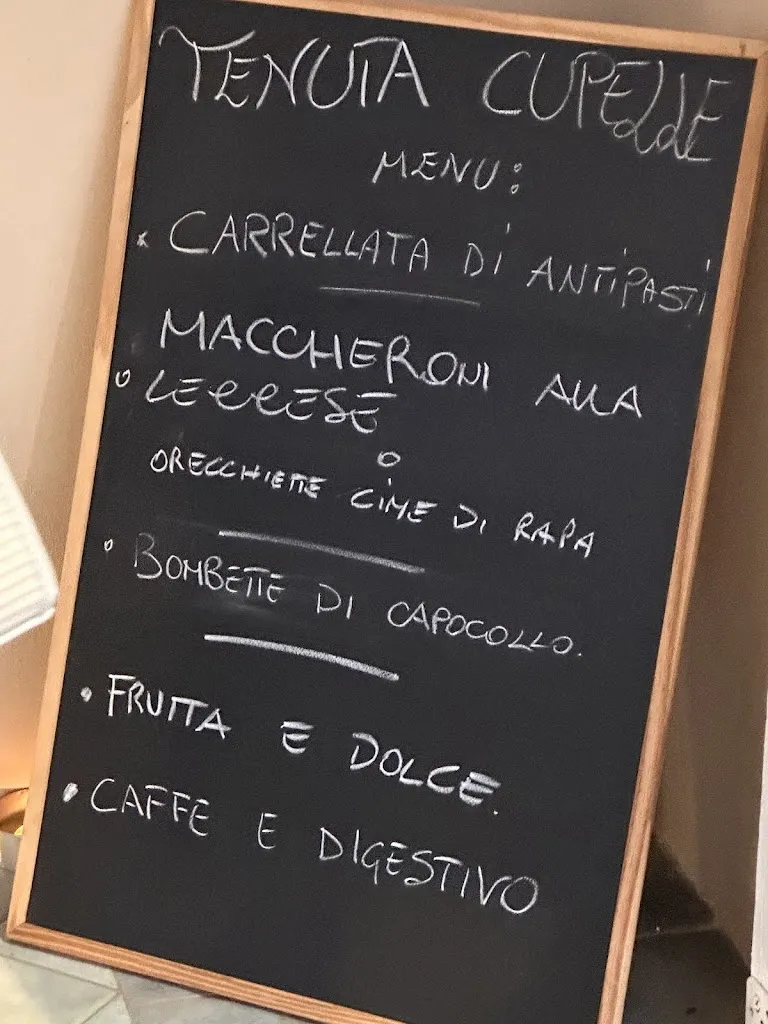 TENUTA CUPELLE
MENU:
CARRELLATA DI ANTIPASTI
MACCHERONI ALLA
LECCESE
O
ORECCHIETTE CIME DI RAPA
BOMBETTE DI CAPOCOLLO.
FRUTTA E DOLCE.
CAFFE E DIGESTIVO